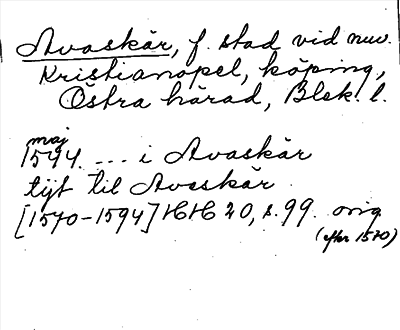 Avaskär, f. stad vid nuv.
Kristianopel, köping,
Östra härad, Blek. l.
maj
1544. --- i Avaskär
tijt til Aveskär
[1570-1594] HH 20, s. 99. orig.
(efter 1570)